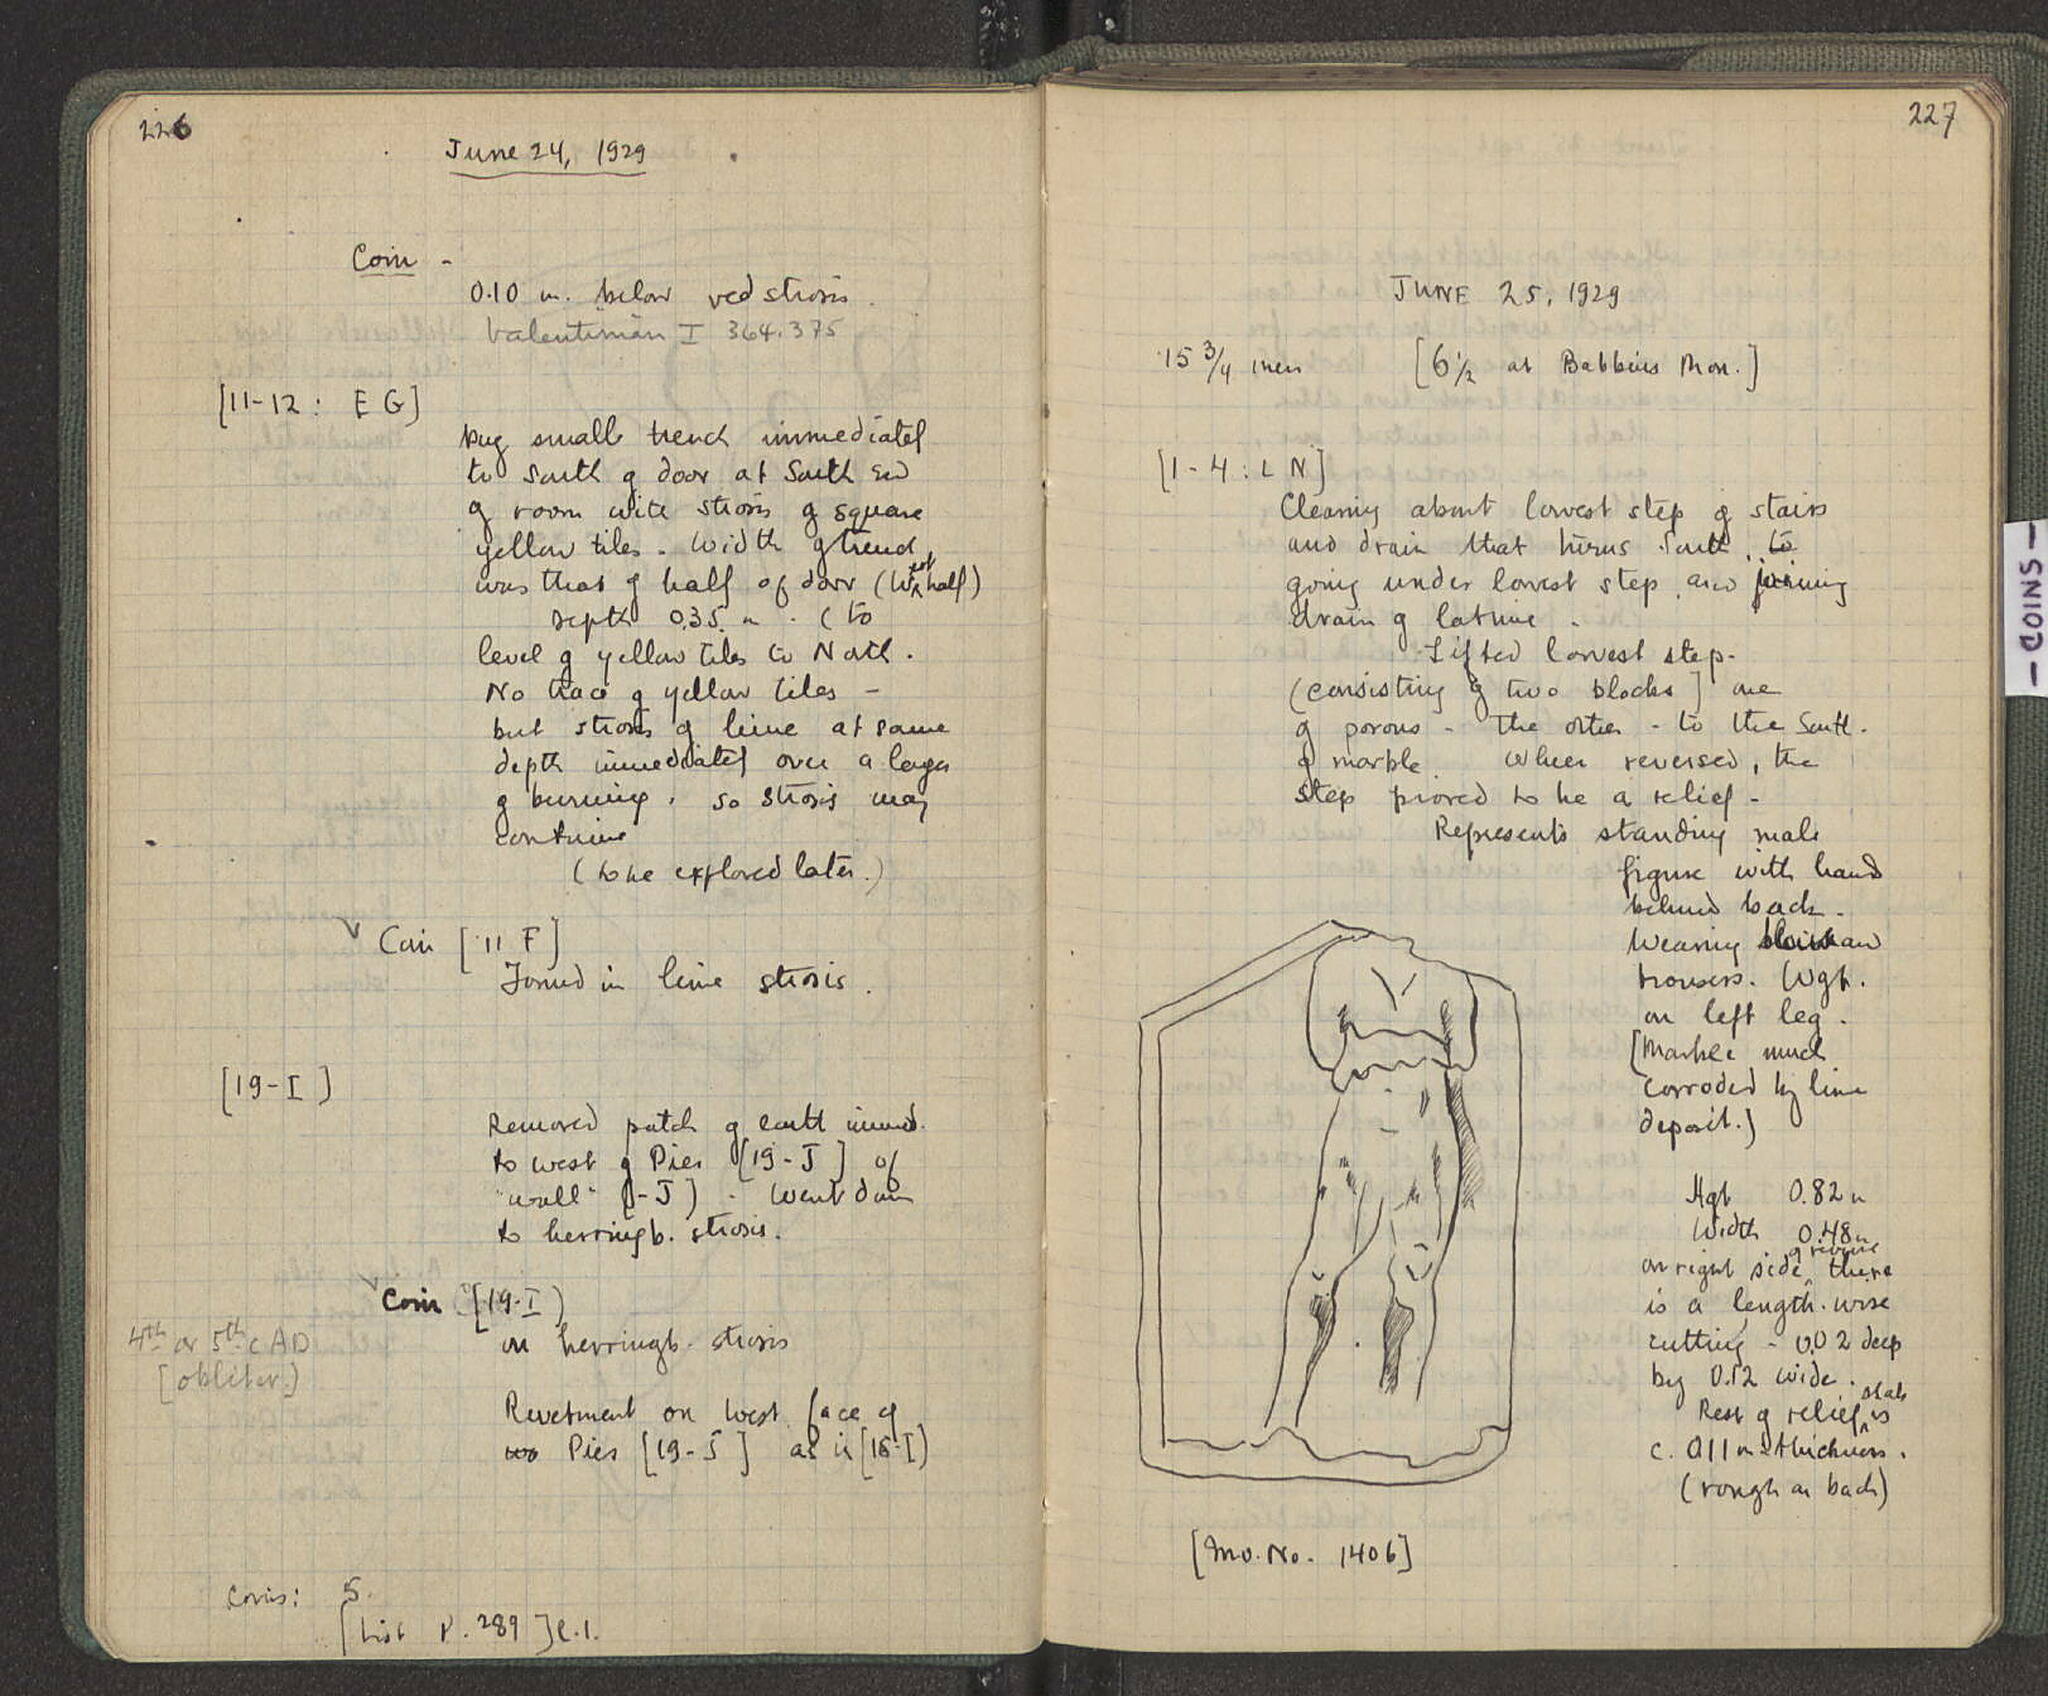 226
June 24, 1929
Coin -
0.10 m. below red strosis.
Valentinian I 364.375
[11-12: E G]
Dug small trench immediately
to South of door at South End
of room with strosis of square
yellow tiles. Width of trench
was that of half of door (West half)
depth 0.35 m. (to
level of yellow tiles to North.
No trace of yellow tiles -
but strosis of lime at same
depth immediately over a layer
of burning. So strosis may
continue
(to be explored later.)
Coin [11 F]
Found in lime strosis.
[19-I]
Removed patch of earth immed.
to west of Pier [19-J] of
"wall" [-J]. Went down
to herringb. strosis.
Coin [19-I]
on herringb. strosis
4th or 5th c AD
[obliter.]
Revetment on West face of
Pier [19-J] as in [16-I]
Coins: 5.
[List P. 289] l.1.
227
JUNE 25, 1929
15 3/4 men [6 1/2 at Babbius Mon.]
[1-4: L N]
Cleaning about lowest step of stairs
and drain that turns South, to
going under lowest step and joining
drain of latrine.
Lifted lowest step.
(consisting of two blocks] one
of poros - The other - to the South.
of marble. When reversed, the
step proved to be a relief -
Represents standing male
figure with hands
behind back.
Wearing
trousers. Wgt.
on left leg.
[Marble much
corroded by lime
deposit.]
Hgt 0.82 m
Width 0.48 m
on right side of reverse there
is a length-wise
cutting - 0.02 deep
by 0.12 wide.
Rest of relief slab is
c. 0.11 m thickness.
(rough on back)
[Inv. No. 1406]
- COINS -